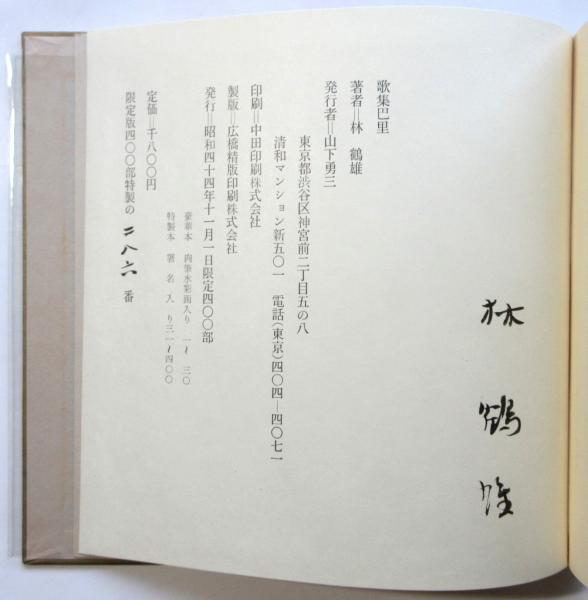 林鶴雄
歌集巴里
著者＝林　鶴雄
発行者＝山下勇三
東京都渋谷区神宮前二丁目五の八
清和マンション新五〇一　電話（東京）四〇四―四〇七一
印刷＝中田印刷株式会社
製版＝広橋精版印刷株式会社
発行＝昭和四十四年十一月一日限定四〇〇部
豪華本　肉筆水彩画入り　一〜三〇
特製本　署名入り三一〜四〇〇
定価＝千八〇〇円
限定版四〇〇部特製の二八六番